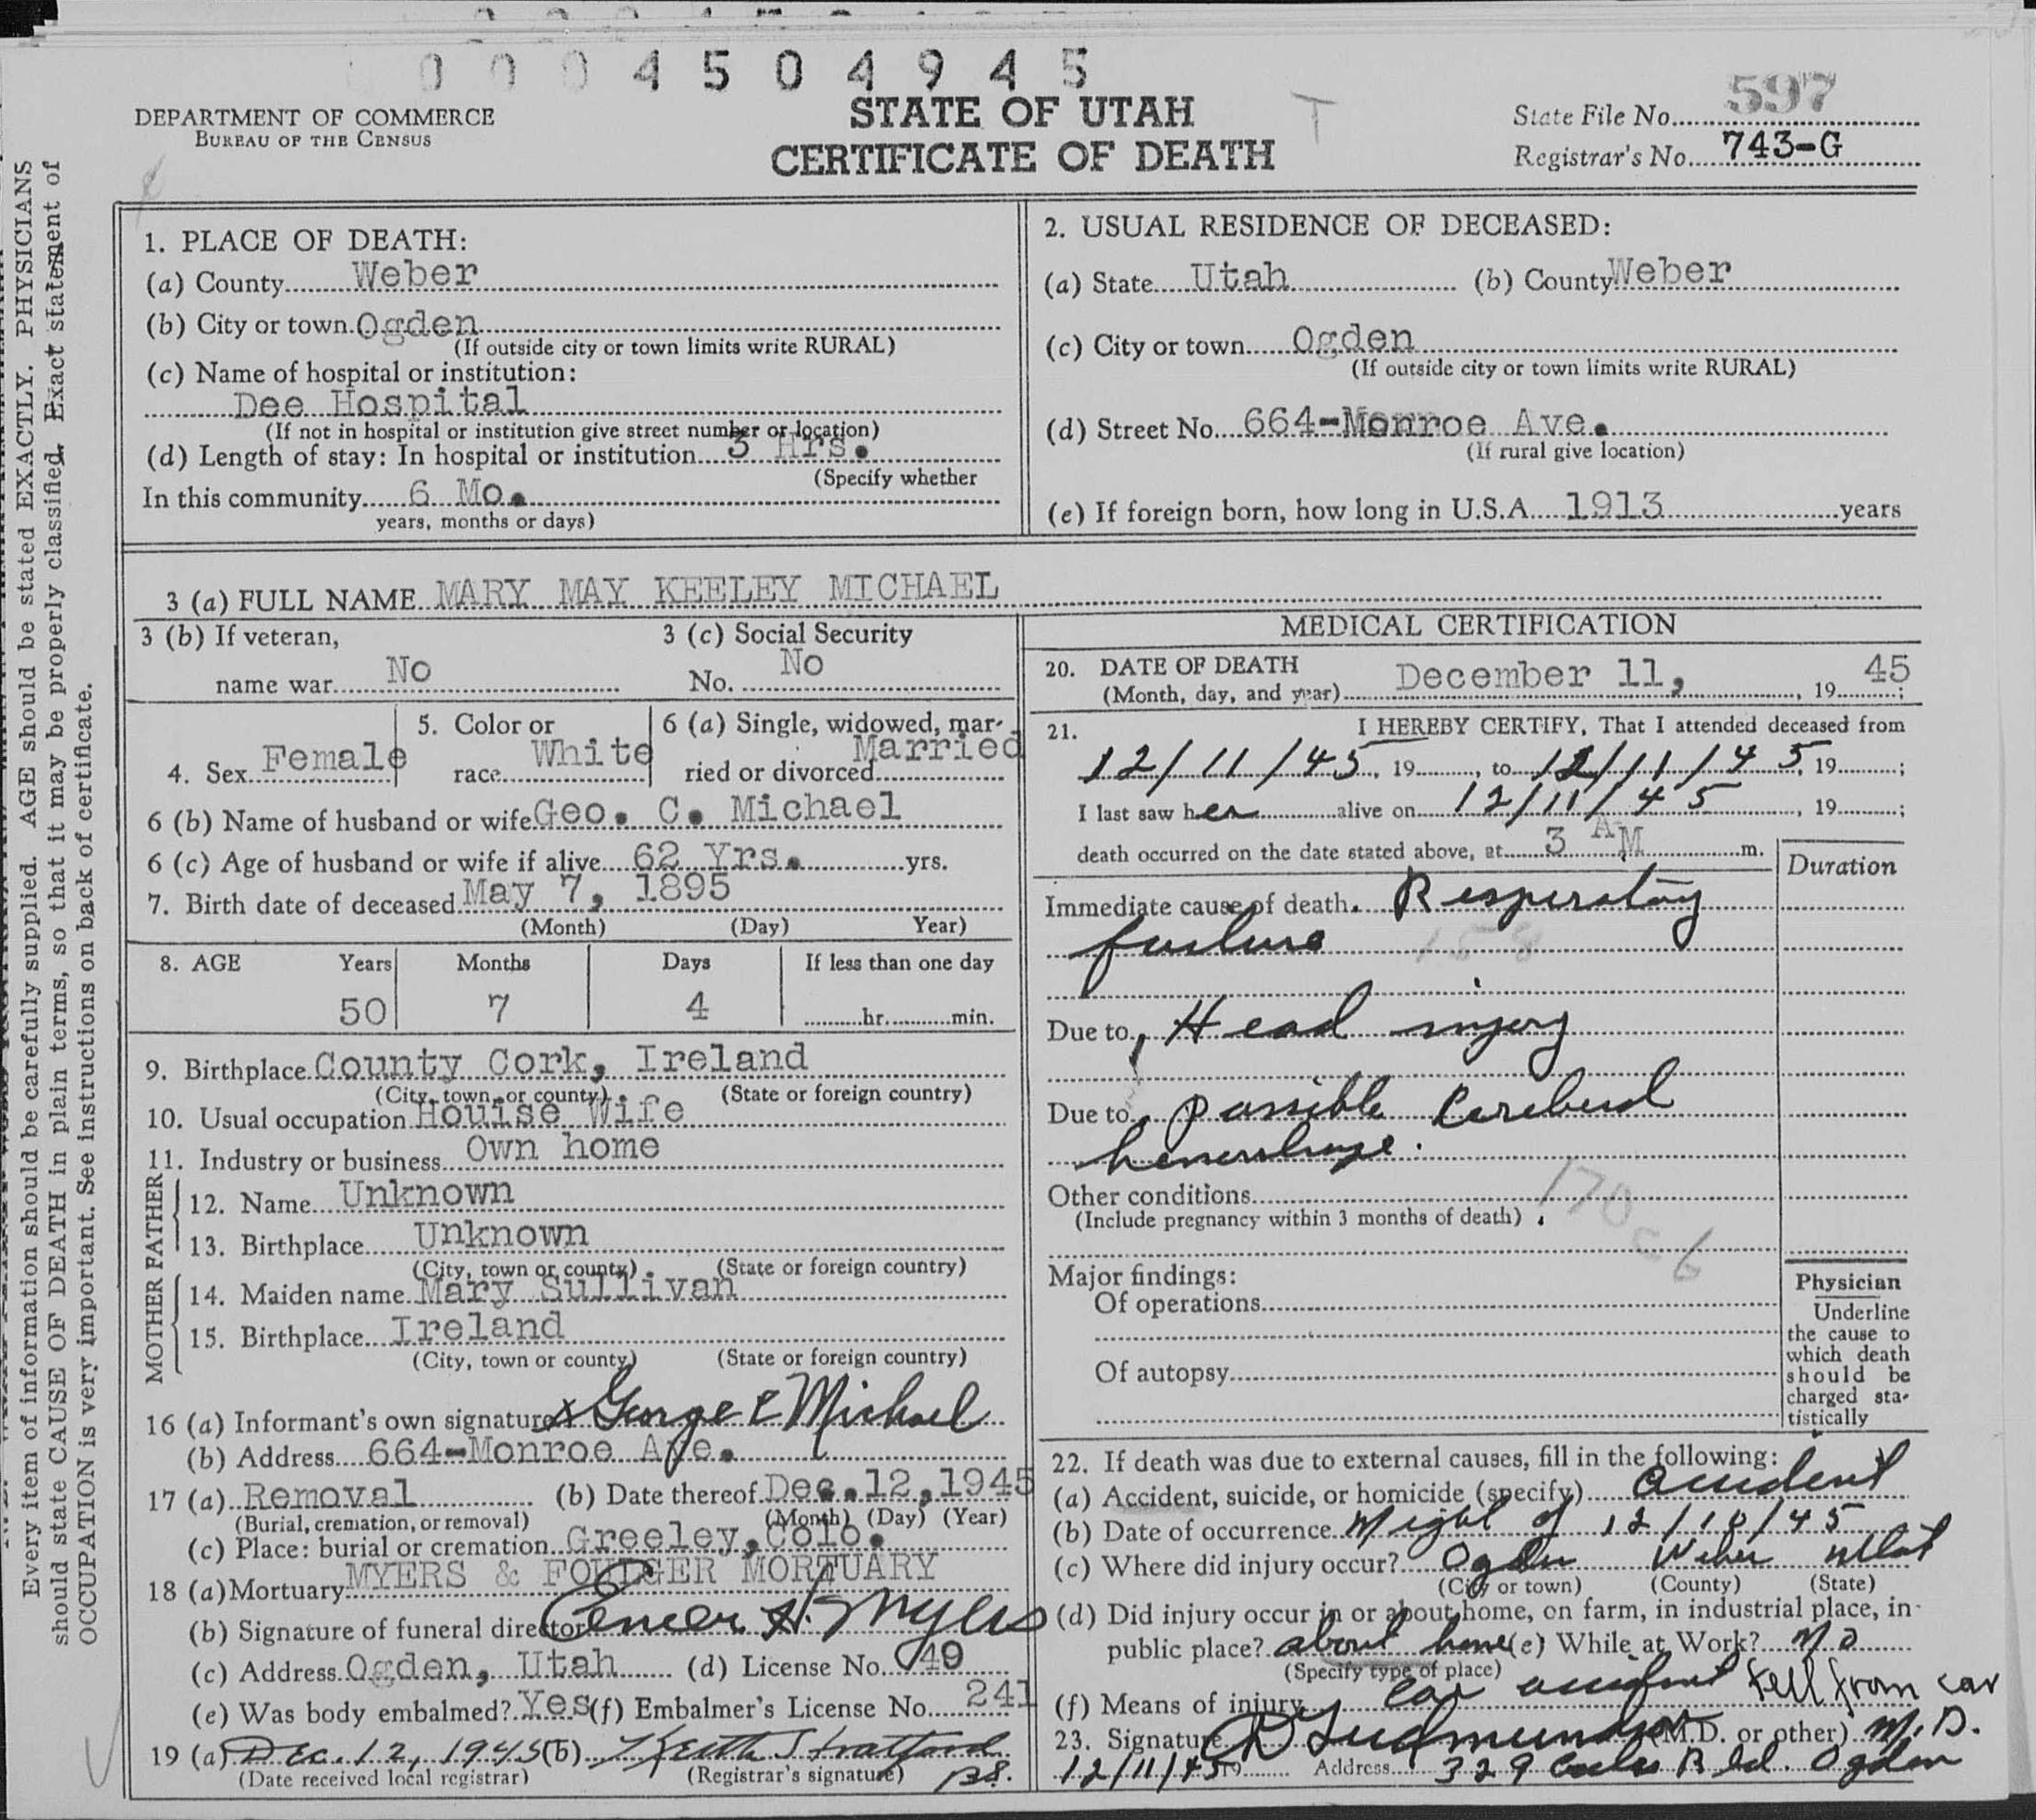 0004504945
DEPARTMENT OF COMMERCE
BUREAU OF THE CENSUS
STATE OF UTAH
CERTIFICATE OF DEATH
T
State File No. 597
Registrar's No. 743-G
Every item of information should be carefully supplied. AGE should be stated EXACTLY. PHYSICIANS
should state CAUSE OF DEATH in plain terms, so that it may be properly classified. Exact statement of
OCCUPATION is very important. See instructions on back of certificate.
1. PLACE OF DEATH:
(a) County Weber
(b) City or town Ogden
(If outside city or town limits write RURAL)
(c) Name of hospital or institution:
Dee Hospital
(If not in hospital or institution give street number or location)
(d) Length of stay: In hospital or institution 3 Hrs.
(Specify whether
In this community 6 Mo.
years, months or days)
2. USUAL RESIDENCE OF DECEASED:
(a) State Utah (b) County Weber
(c) City or town Ogden
(If outside city or town limits write RURAL)
(d) Street No. 664-Monroe Ave.
(If rural give location)
(e) If foreign born, how long in U.S.A. 1913 years
3 (a) FULL NAME MARY MAY KEELEY MICHAEL
3 (b) If veteran,
name war No
3 (c) Social Security
No. No
4. Sex Female
5. Color or
race White
6 (a) Single, widowed, mar-
ried or divorced Married
6 (b) Name of husband or wife Geo. C. Michael
6 (c) Age of husband or wife if alive 62 Yrs. yrs.
7. Birth date of deceased May 7, 1895
(Month) (Day) Year)
8. AGE Years Months Days If less than one day
50 7 4 hr. min.
9. Birthplace County Cork, Ireland
(City, town or county) (State or foreign country)
10. Usual occupation Houise Wife
11. Industry or business Own home
FATHER
12. Name Unknown
13. Birthplace Unknown
(City, town or county) (State or foreign country)
MOTHER
14. Maiden name Mary Sullivan
15. Birthplace Ireland
(City, town or county) (State or foreign country)
16 (a) Informant's own signature x George C Michael
(b) Address 664-Monroe Ave.
17 (a) Removal (b) Date thereof Dec. 12, 1945
(Burial, cremation, or removal) (Month) (Day) (Year)
(c) Place: burial or cremation Greeley, Colo.
18 (a) Mortuary MYERS & FOULGER MORTUARY
(b) Signature of funeral director H. Myers
(c) Address Ogden, Utah (d) License No. 49
(e) Was body embalmed? Yes (f) Embalmer's License No. 241
19 (a) Dec. 12, 1945 (b) Keith Stratford
(Date received local registrar) (Registrar's signature)
MEDICAL CERTIFICATION
20. DATE OF DEATH
(Month, day, and year) December 11, , 19 45;
21. I HEREBY CERTIFY, That I attended deceased from
12/11/45, 19 , to 12/11/45, 19 ;
I last saw her alive on 12/11/45, 19 ;
death occurred on the date stated above, at 3 AM m.
Duration
Immediate cause of death. Resperatory
failure
158
Due to Head injery
Due to possible Cerebral
hemorrhage.
Other conditions
(Include pregnancy within 3 months of death)
170 c 6
Major findings:
Of operations
Of autopsy
Physician
Underline
the cause to
which death
should be
charged sta-
tistically
22. If death was due to external causes, fill in the following:
(a) Accident, suicide, or homicide (specify) accident
(b) Date of occurrence Night of 12/10/45
(c) Where did injury occur? Ogden Weber Utah
(City or town) (County) (State)
(d) Did injury occur in or about home, on farm, in industrial place, in
public place? about home (e) While at Work? No
(Specify type of place)
(f) Means of injury Car accident fell from car
23. Signature Gudmundson (M.D. or other) M.D.
12/11/45 19 Address 329 Bld. Ogden